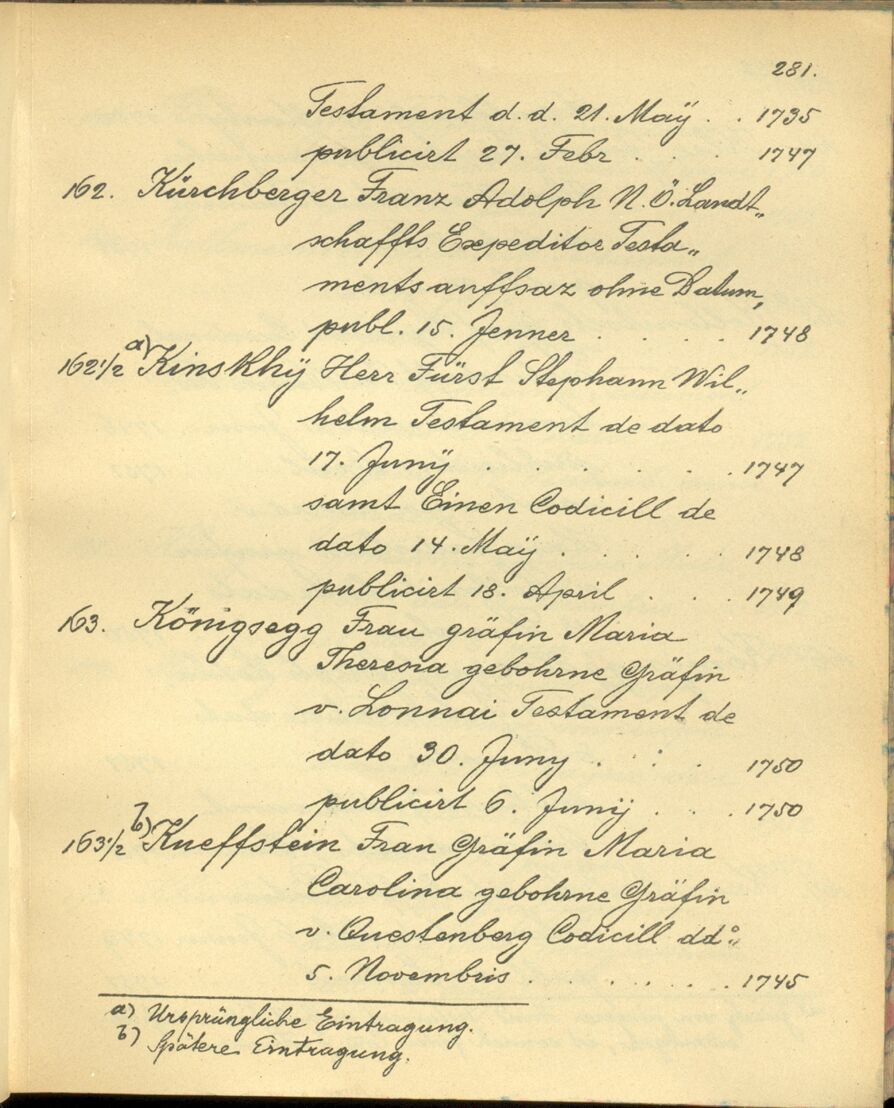 281.
Testament d. d. 21. Maÿ . . 1735
publicirt 27. Febr . . . 1747
162. Kürchberger Franz Adolph N. Ö. Landt„
schaffts Expeditor Testa„
ments auffsaz ohne Datum,
publ. 15. Jenner . . . . 1748
162 1/2 a) Kinskhÿ Herr Fürst Stephann Wil„
helm Testament de dato
17. Junÿ . . . . . . 1747
samt Einen Codicill de
dato 14. Maÿ . . . . . 1748
publicirt 18. April . . . 1749
163. Königsegg Frau gräfin Maria
Theresia gebohrne Gräfin
v. Lonnai Testament de
dato 30. Juny . . . 1750
publicirt 6. Junÿ . . . 1750
163 1/2 b) Kueffstein Frau Gräfin Maria
Carolina gebohrne Gräfin
v. Questenberg Codicill ddº„
5. Novembris . . . . . . . 1745
a) Ursprüngliche Eintragung.
b) Spätere Eintragung.